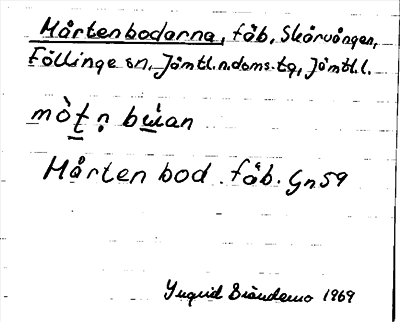 Mårtenbodarna, fäb, Skärvången,
Föllinge sn, Jämtl.n.doms.tg, Jämtl.l.
mò̀t̠n̥ bẁ̠an
Mårten bod. fäb. Gn59
Yngvid Siöndemo 1969